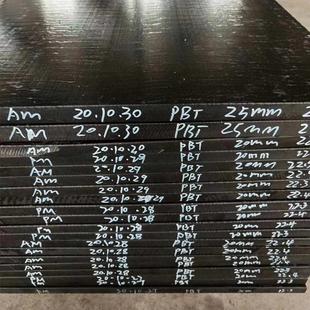 AM 20.10.30 PBT 25mm 2
AM 20.10.30 PBT 25mm 2
AM 20.10.30 PBT 20mm 22
PM 20.10.29 PBT 20mm 22.
AM 20.10.29 PBT 20mm 22.5
AM 20.10.29 PBT 20mm 22.3
AM 20.10.29 PBT 20mm 22.2
AM 20.10.29 PBT 20mm
PM 20.10.28 PBT 20mm 22.3
PM 20.10.28 PBT 20mm 22.4
PM 20.10.28 PBT 20mm
AM 20.10.28 PBT 20mm 22.4
AM 20.10.28 PBT 20mm 22.4
AM 20.10.28 PBT 20mm 22.4
AM 20.10.28 PBT 20mm 22.3
PM 20.10.27 PBT 20mm 22.3
AM 20.10. PBT 22.3